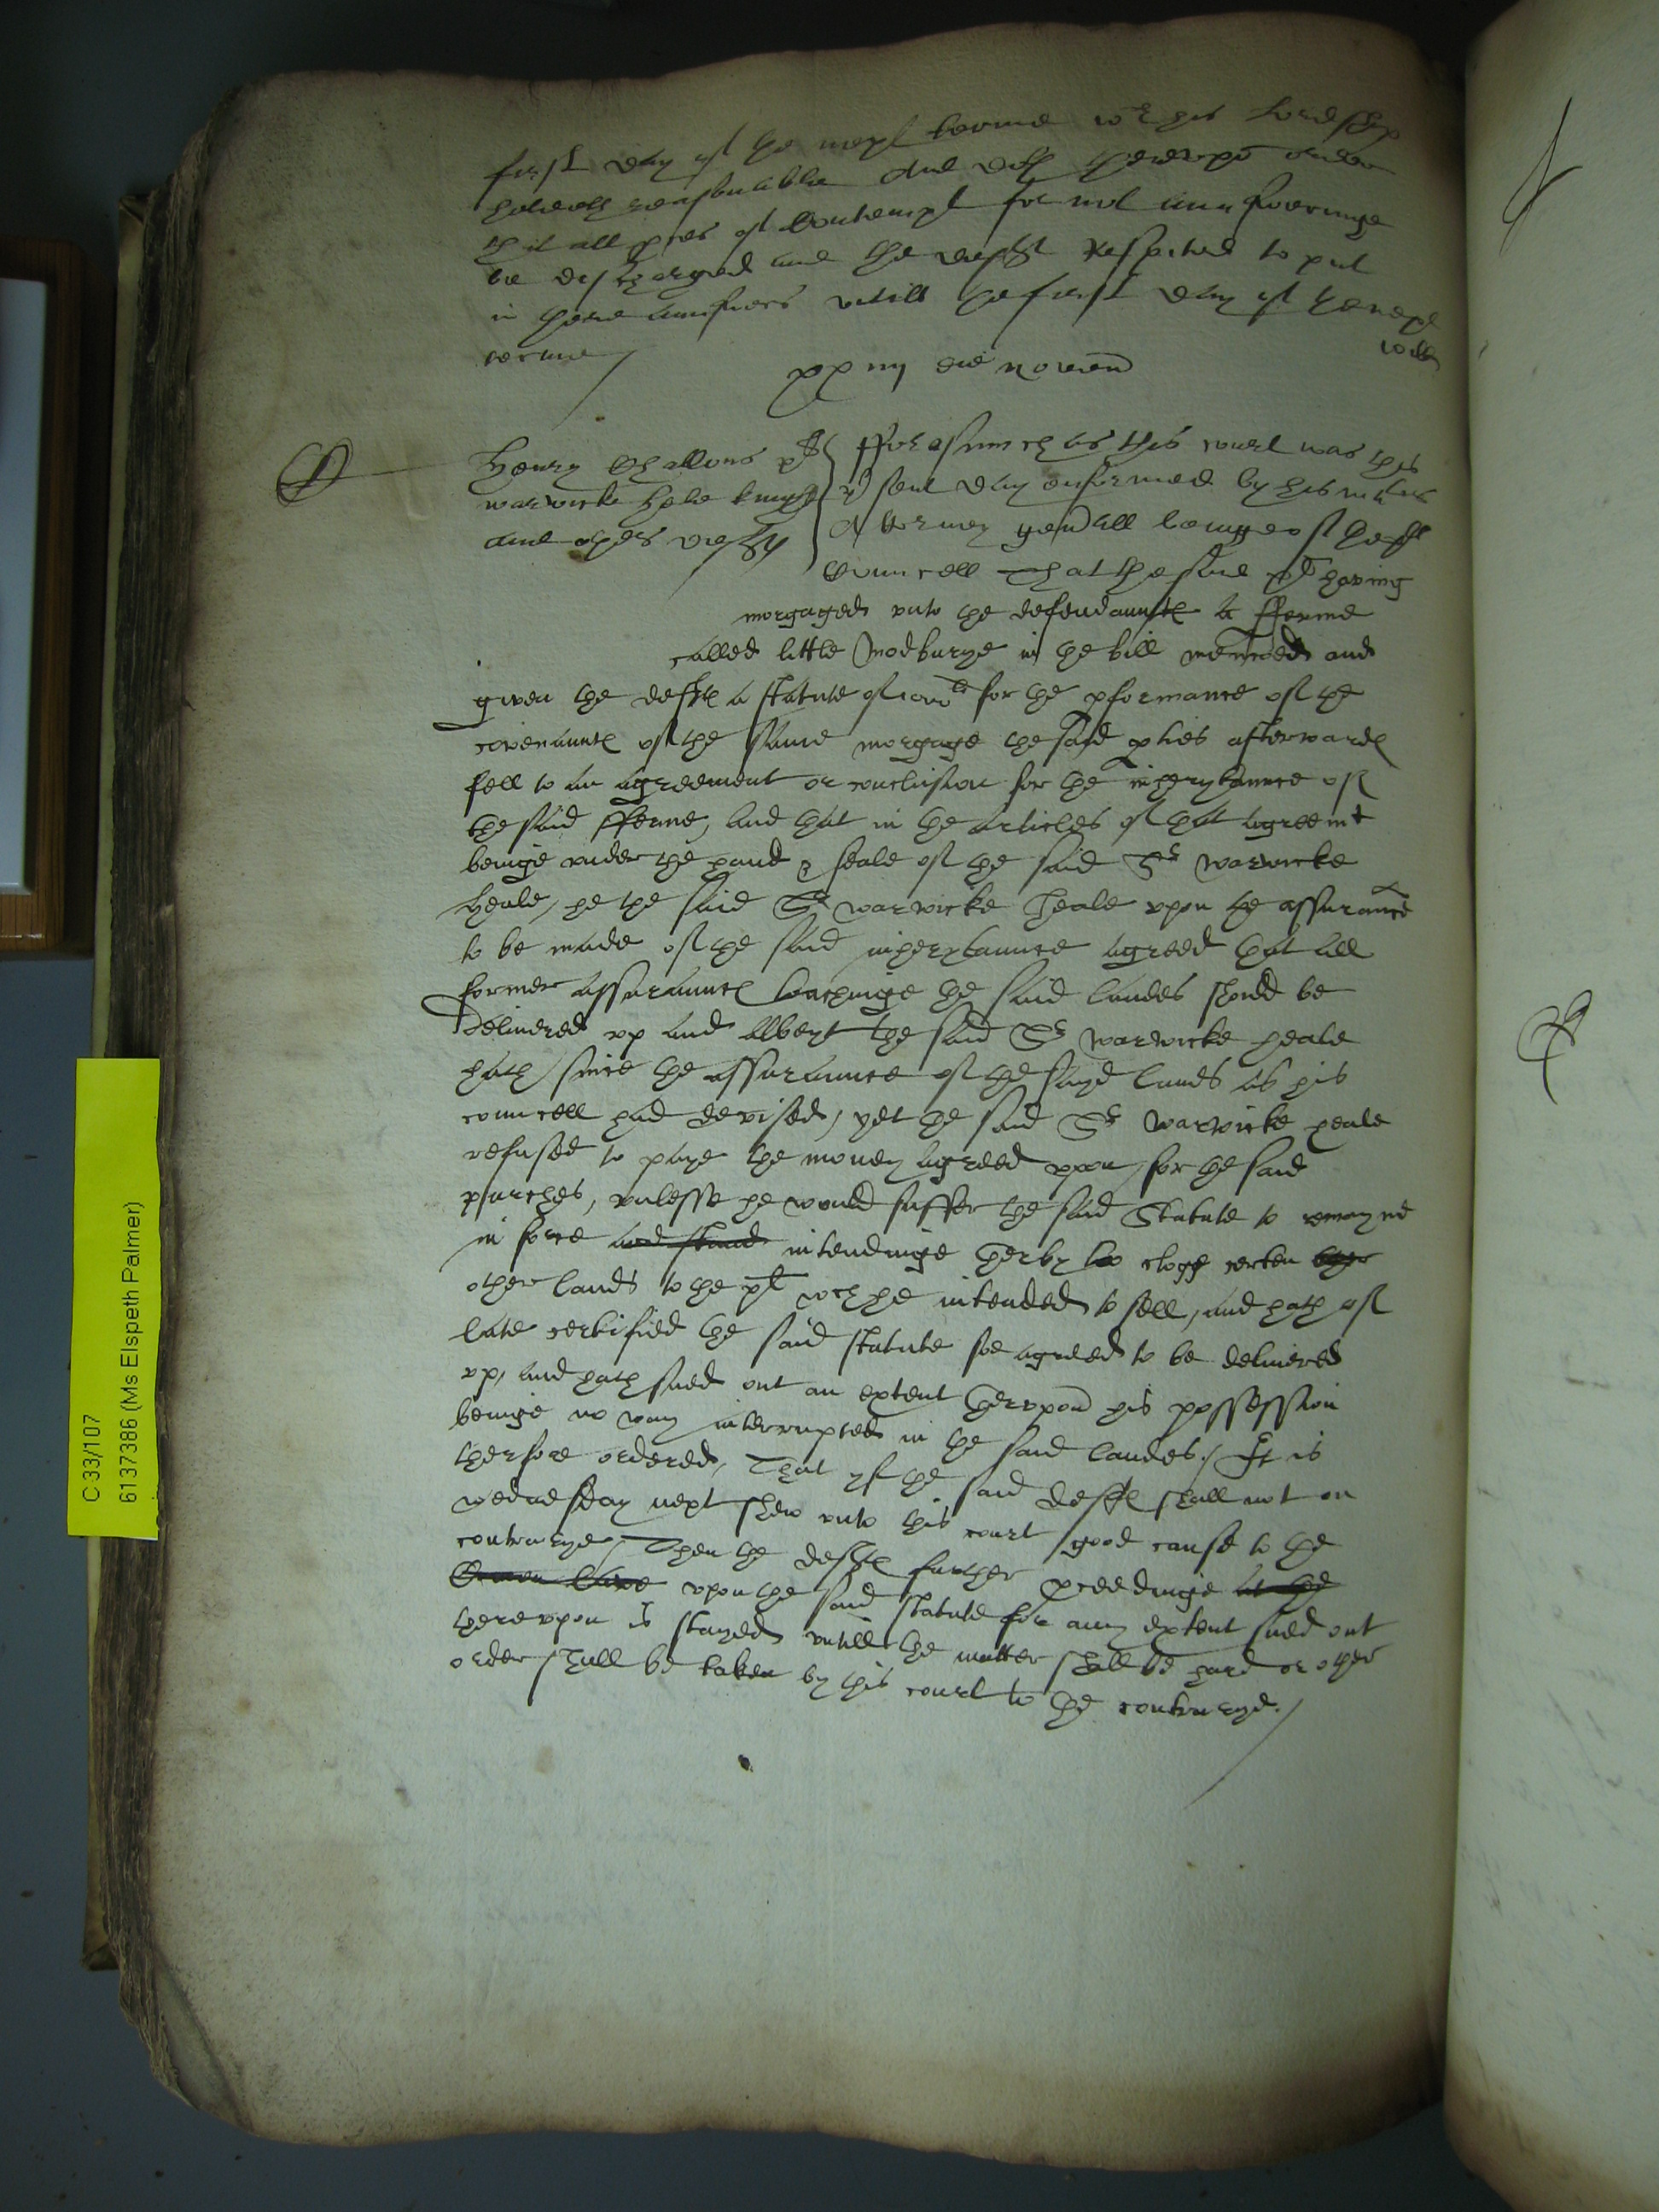 first day of the next terme wch his Lordshipp
holdeth reasonable And doth therevpō order
that all pces of Contempt for not annsweringe
be discharged and the defts respited to put
in there annswers vntill the first day of the next
terme /
xxiiij die Novem̄
Henry Challons plt
warwicke hele knight
and others defts
fforasmuch as this court was this
pͬsent day enformed by his mats
Attorney genͬall beinge of the plts
Councell That the said plt having
morgaged vnto the defendauntes a fferme
called little Modburye in the bill mencōed and
given the deftes a statute of for the pformance of the
covenauntes of the same morgage the said pties afterwardes
fell to an agreement or conclusion for the inherytaunce of
the said fferme, and that in the articles of that agreemt
beinge vnder the hand & seale of the said Sr warwicke
Heale, he the said Sr warwicke Heale vpon the assurance
to be made of the said inherytaunce agreed that all
former assurauntes towchinge the said landes should be
delivered vp and albeyt the said Sr warwicke heale
hath since the assuraunce of the sayd lands as his
councell had devised, yet the said Sr Warwicke heale
refused to paye the money agreed vpon, for the said
purches, vnlesse he would suffer the said Statute to remayne
in force and stand intendinge therby to clogg certen other
other lands to the plt wch he intended to sell, and hath of
late certified the said statute soe agreed to be delivered
vp, and hath sued out an extent thervpon his possession
beinge no way interrupted in the said landes./ It is
therfore ordered, That yf the said deftes shall not on
wednesday next shew vnto this court good cause to the
contrarye, Then the deftes further pceedinge at the
Comon lawe vpon the said statute for any extent sued out
therevpon is stayed vntill the matter shall be hard or other
order shall be taken by this court to the contrarye./
C 33/107
6137386 (Ms Elspeth Palmer)